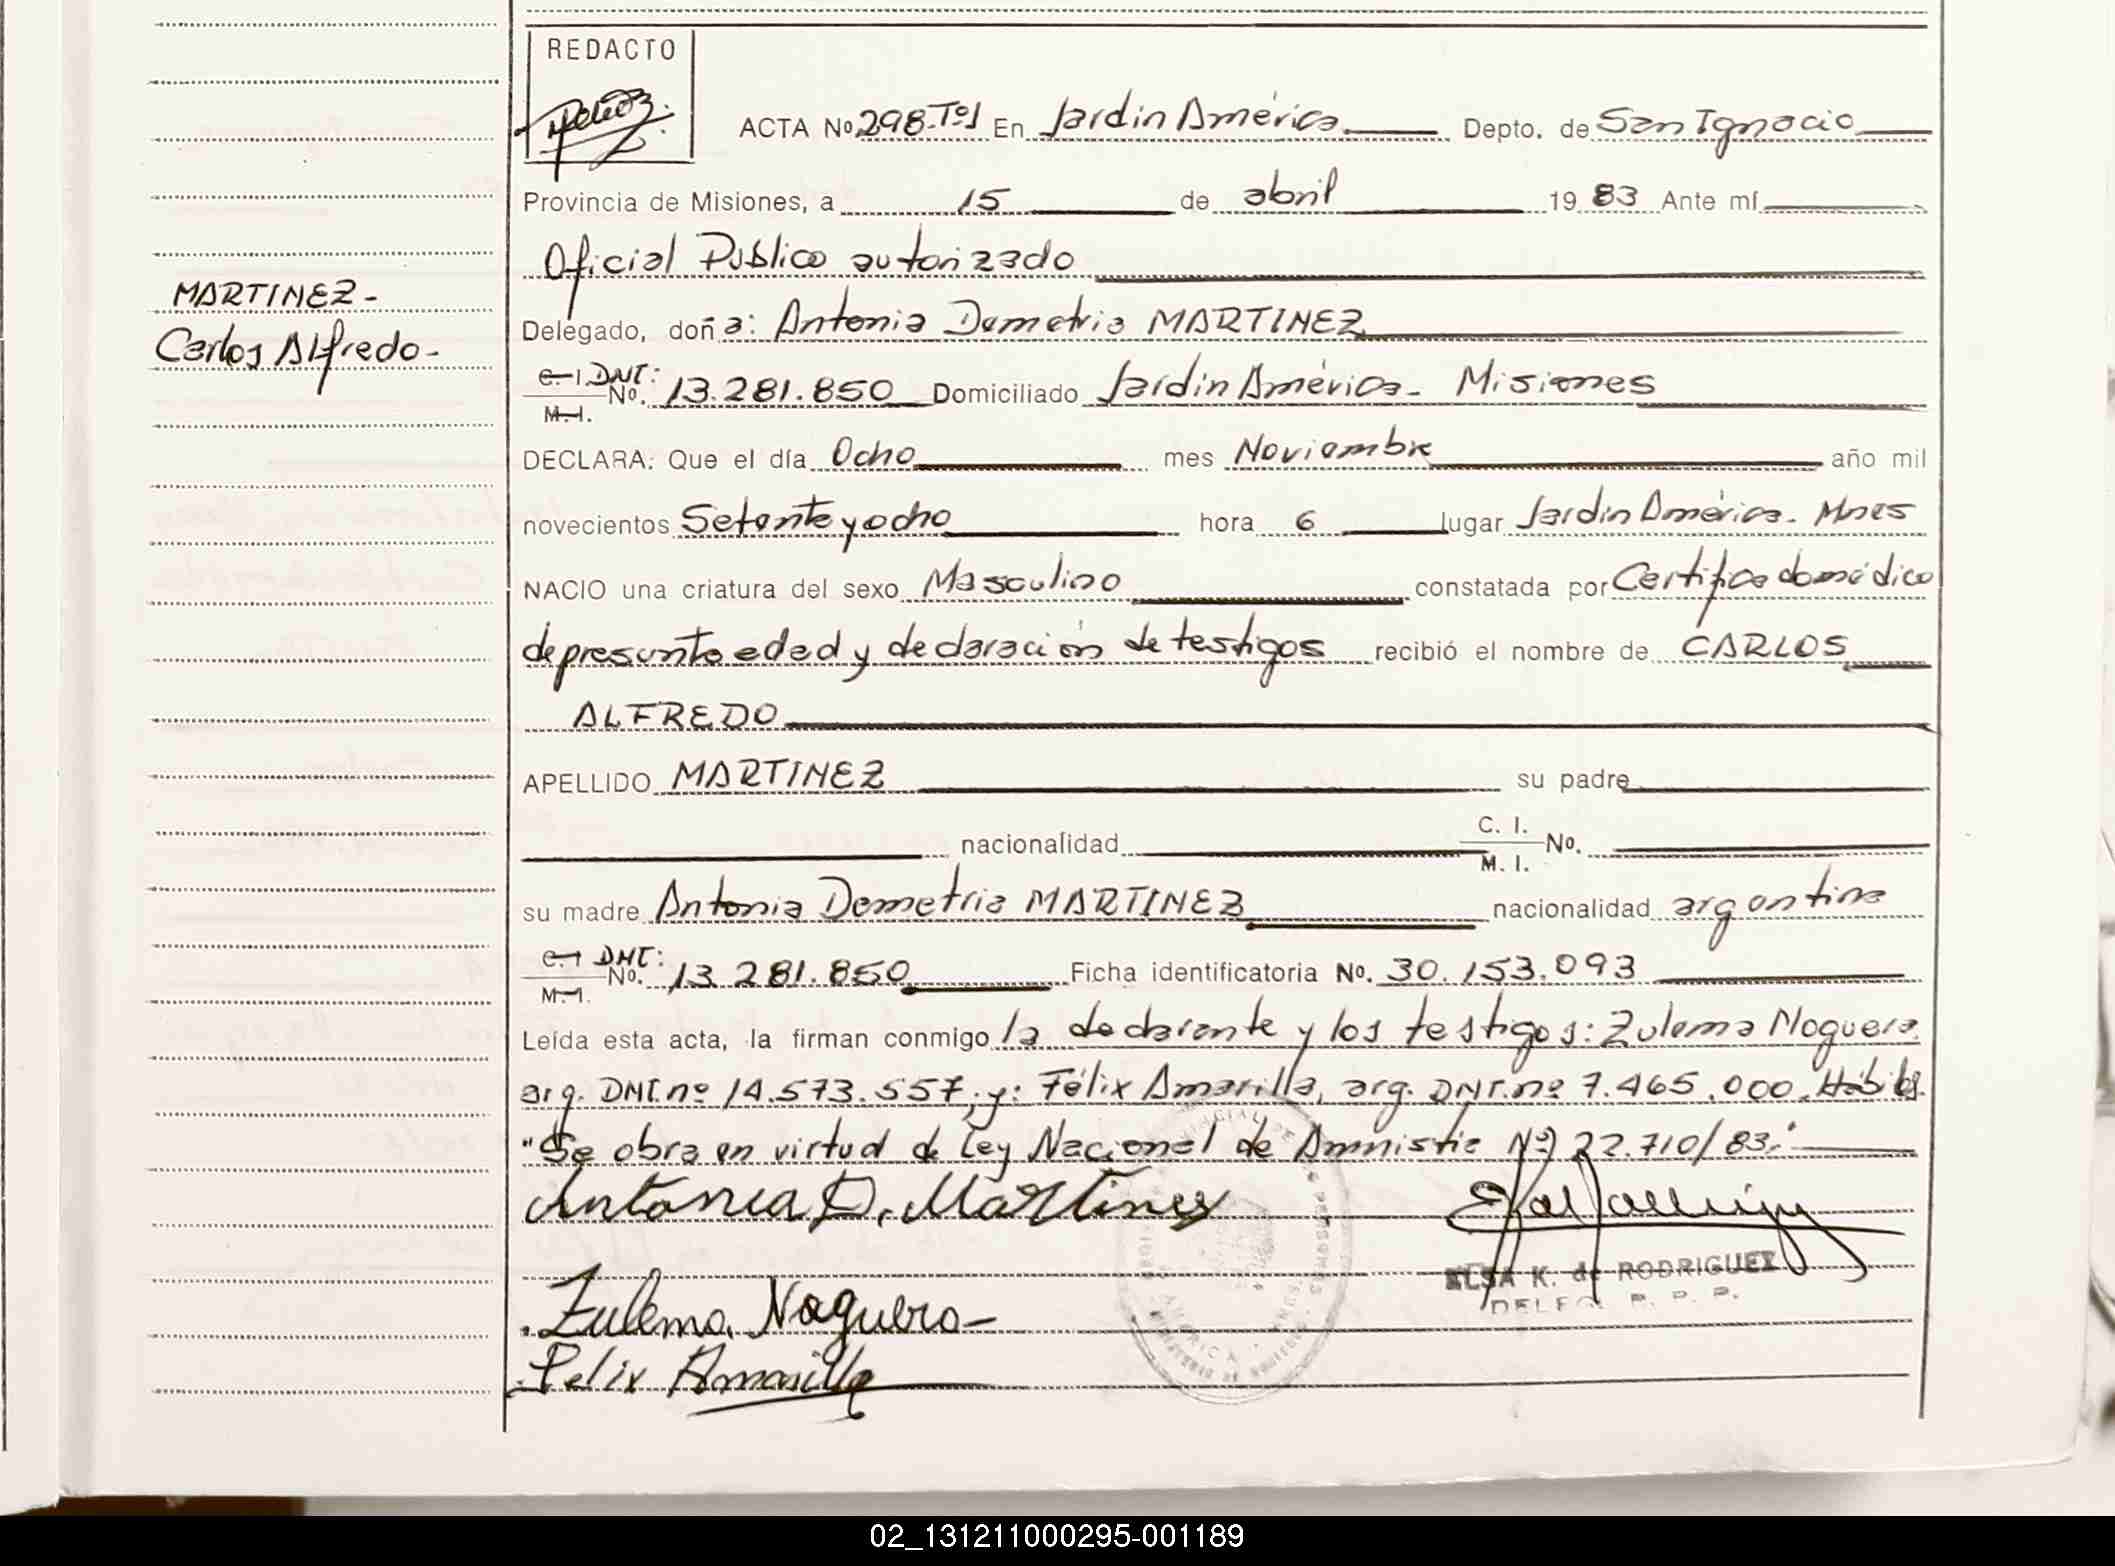 REDACTO
ACTA No 298-Tº1 En Jardín América Depto. de San Ignacio
Provincia de Misiones, a 15 de abril 1983 Ante mí
Oficial Público autorizado
Delegado, doña: Antonia Demetria MARTINEZ
MARTINEZ-
Carlos Alfredo-
C.I. DNI: No. 13.281.850 Domiciliado Jardín América- Misiones
M.I.
DECLARA: Que el día Ocho mes Noviembre año mil
novecientos Setenta y ocho hora 6 lugar Jardín América. Mnes
NACIO una criatura del sexo Masculino constatada por Certificado médico
de presunta edad y declaración de testigos recibió el nombre de CARLOS
ALFREDO
APELLIDO MARTINEZ su padre
nacionalidad C. I. No.
M. I.
su madre Antonia Demetria MARTINEZ nacionalidad argentina
C.I. DNI: No. 13.281.850 Ficha identificatoria No. 30.153.093
M.I.
Leída esta acta, la firman conmigo la declarante y los testigos: Zulema Noguera
arg. DNI. nº 14.573.557, y: Félix Amarilla, arg. DNI. nº 7.465.000. Hábiles.
"Se obra en virtud de Ley Nacional de Amnistia Nº) 22.710/83."
Antonia D. Martinez
ELSA K. de RODRIGUEZ
DELEG. R. P. P.
Zulema Noguera-
Felix Amarilla
02_131211000295-001189